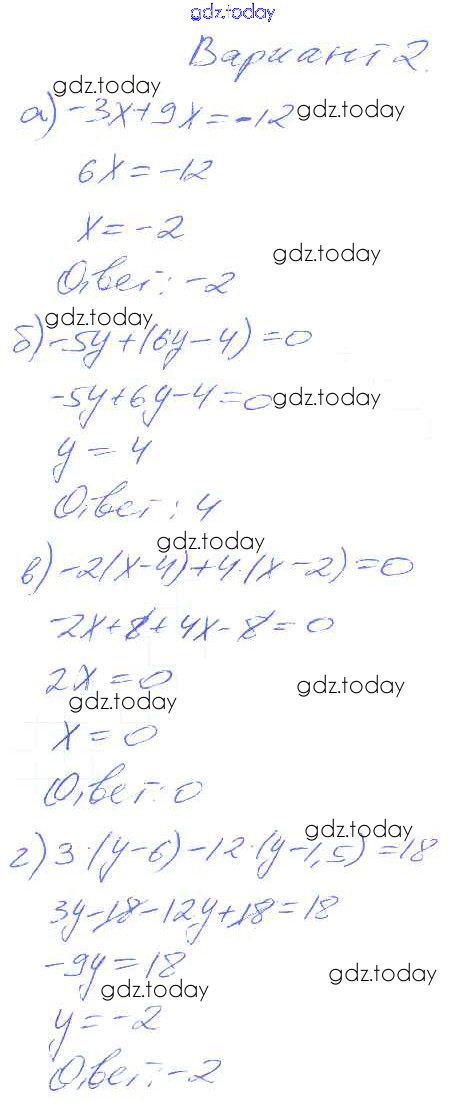 gdz.today
Вариант 2.
gdz.today
а) -3x+9x=-12 gdz.today
6x=-12
x=-2
gdz.today
Ответ: -2
gdz.today
б) -5y+(6y-4)=0
-5y+6y-4=0 gdz.today
y=4
Ответ: 4
gdz.today
в) -2(x-4)+4·(x-2)=0
-2x+8+4x-8=0
2x=0 gdz.today
gdz.today
x=0
Ответ: 0
gdz.today
г) 3·(y-6)-12·(y-1,5)=18
3y-18-12y+18=18
-9y=18
gdz.today
gdz.today
y=-2
Ответ: -2